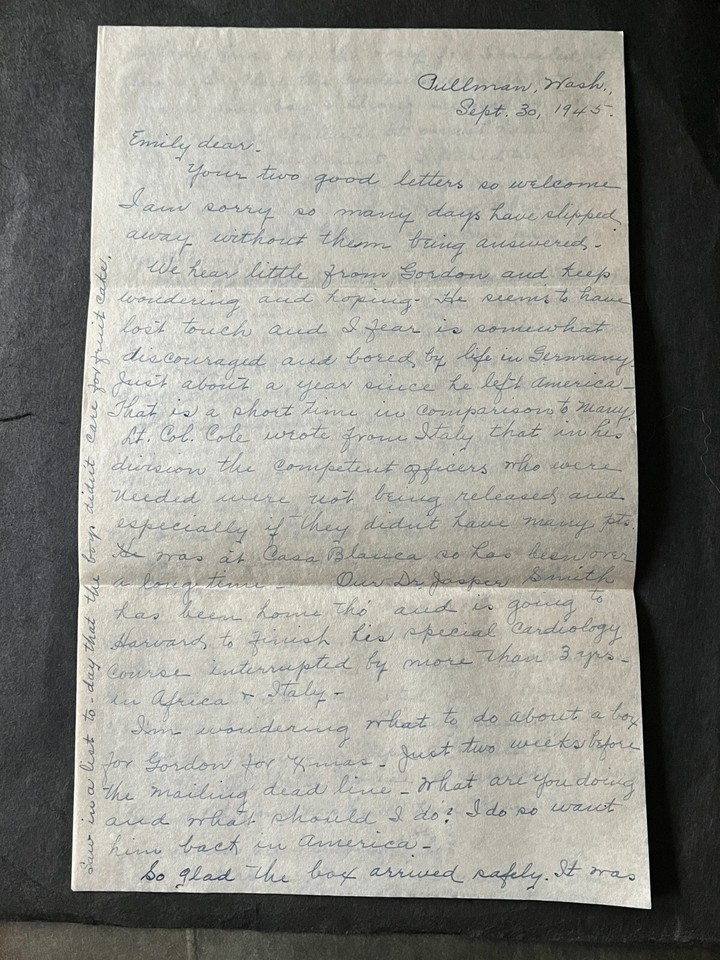 Pullman, Wash.,
Sept. 30, 1945.
Emily dear.
Your two good letters so welcome
I am sorry so many days have slipped
away without them being answered.
We hear little from Gordon and keep
wondering and hoping. He seems to have
lost touch and I fear is somewhat
discouraged and bored by life in Germany.
Just about a year since he left America.
That is a short time in comparison to many.
Lt. Col. Cole wrote from Italy that in his
division the competent officers who were
needed were not being released and
especially if they didnt have many pts.
He was at Casa Blanca so has been over
a long time. Our Dr. Jasper Smith
has been home tho' and is going to
Harvard to finish his special cardiology
course interrupted by more than 3 yrs.
in Africa & Italy.
I'm wondering what to do about a box
for Gordon for Xmas. Just two weeks before
the mailing dead line. What are you doing
and what should I do? I do so want
him back in America.
So glad the box arrived safely. It was
Saw in a list to-day that the boys didn't care for fruit cake.